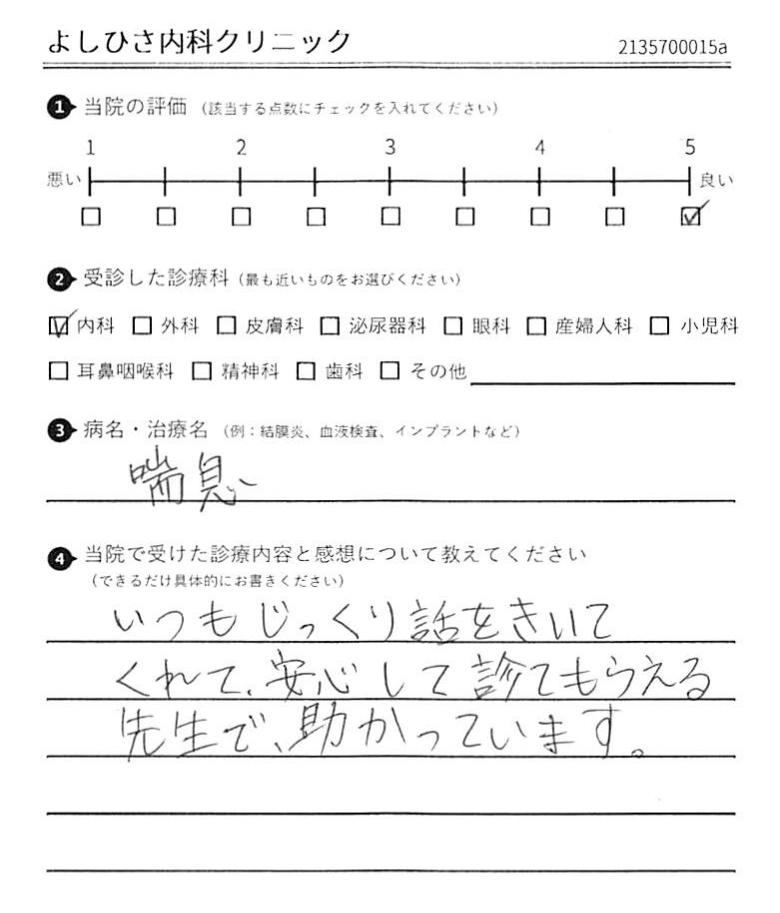 よしひさ内科クリニック
2135700015a
1 当院の評価 （該当する点数にチェックを入れてください）
1 2 3 4 5
悪い 良い
□ □ □ □ □ □ □ □ ☑
2 受診した診療科（最も近いものをお選びください）
☑ 内科 □ 外科 □ 皮膚科 □ 泌尿器科 □ 眼科 □ 産婦人科 □ 小児科
□ 耳鼻咽喉科 □ 精神科 □ 歯科 □ その他
3 病名・治療名 （例：結膜炎、血液検査、インプラントなど）
喘息
4 当院で受けた診療内容と感想について教えてください
（できるだけ具体的にお書きください）
いつもじっくり話をきいて
くれて、安心して診てもらえる
先生で、助かっています。